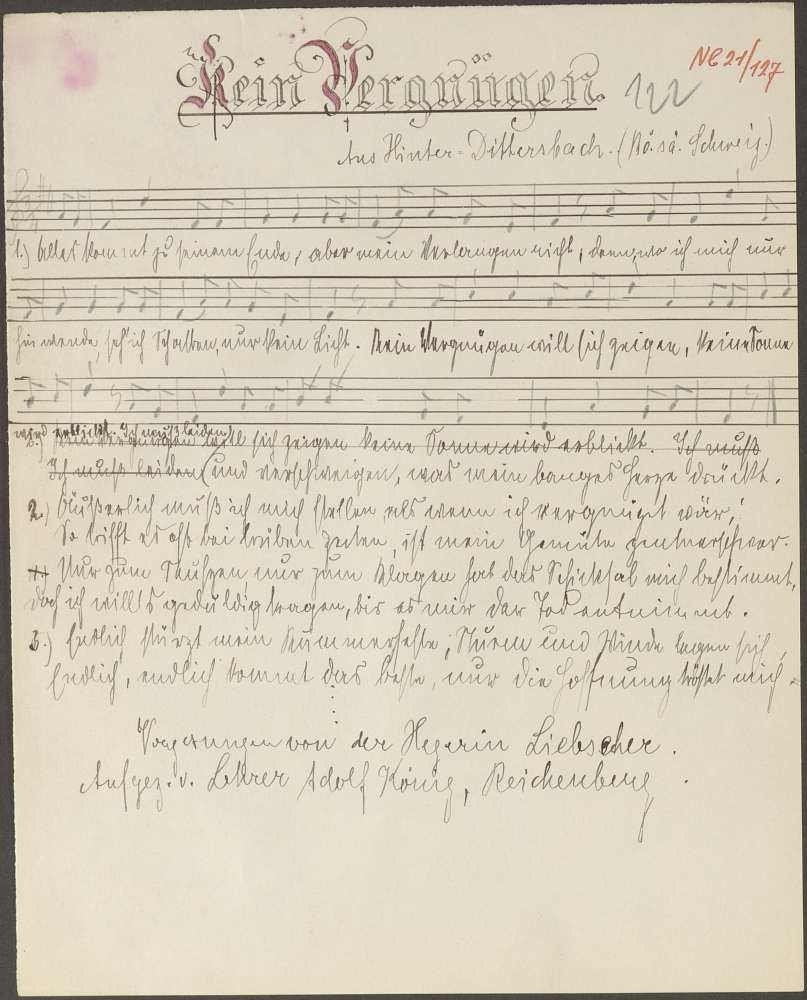 Kein Vergnügen.
NC 21/127
122
Aus Hinter-Dittersbach. (Bö. sä. Schweiz.)
1.) Alles kommt zu seinem Ende, aber mein Verlangen nicht, denn, wo ich mich nur
hin wende, seh' ich Schatten, nur kein Licht. Kein Vergnügen will sich zeigen, keine Sonne
wird erblickt. Ich muß leiden
Kein Vergnügen will sich zeigen keine Sonne wird erblickt. Ich muß
Ich muß leiden (und verschweigen, was mein banges Herze drückt.
2.) Äußerlich muß ich mich stellen, als wenn ich vergnügt wär,
So trifft es oft bei trüben Zeiten, ist mein Gemüte zentnerschwer.
Nur zum Seufzen nur zum Klagen hat das Schicksal mich bestimmt,
doch ich will's geduldig tragen, bis es mir der Tod entnimmt.
3.) Endlich stürzt mein Kummerfeste, Sturm und Winde legen sich,
Endlich, endlich kommt das beste, nur die Hoffnung tröstet mich.
Vorgesungen von der Hegerin Liebscher.
Aufgez. v. Lehrer Adolf König, Reichenberg.